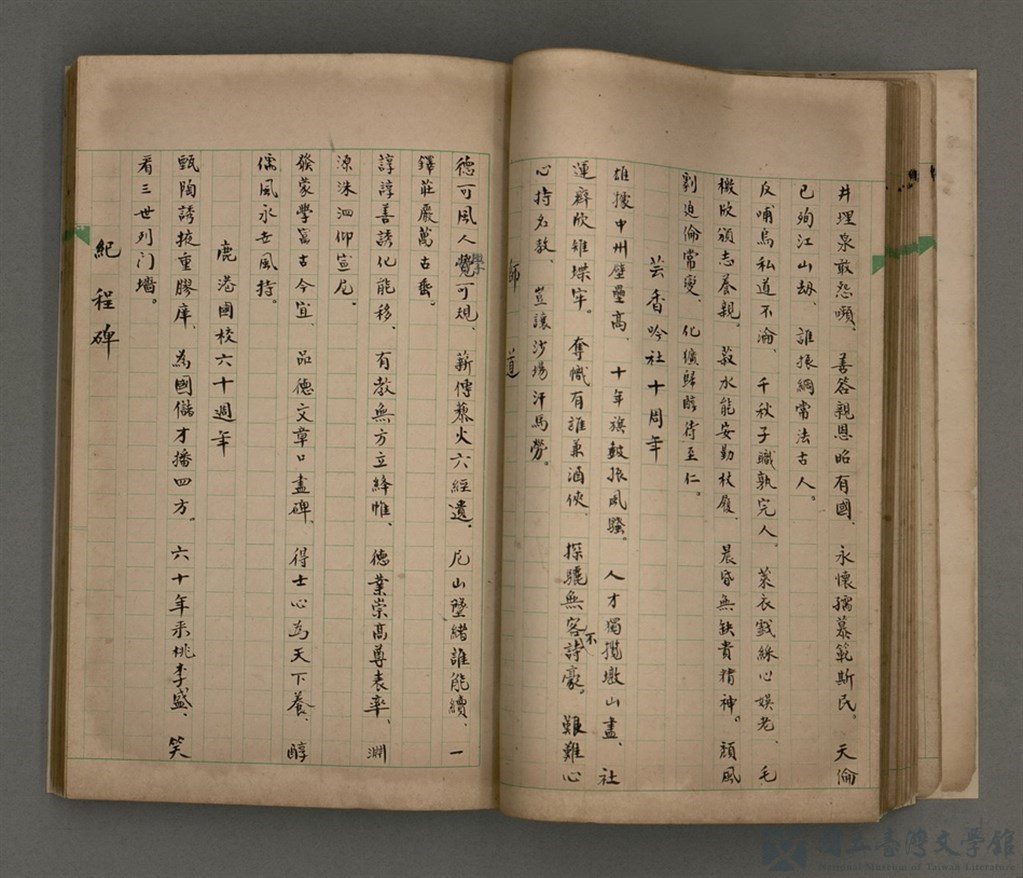 井埋泉敢怨嚬、善答親恩昭有國、永懷孺慕範斯民。天倫
已殉江山劫、誰振綱常法古人。
反哺烏私道不淪、千秋子職孰完人。萊衣戲綵心娛老、毛
檄欣頒志養親。菽水能安勤杖履、晨昏無缺貴精神。頹風
剗迫倫常變、化獷歸醇待至仁。
芸香吟社十周年
雄據中州壁壘高、十年旗鼓振風騷。人才獨攬墩山盡、社
運辟欣雉堞牢。奪幟有誰兼酒俠、探驪無客不詩豪。艱難心
心持名教、豈讓沙場汗馬勞。
師道
德可風人學可規、薪傳爇火六經遺、尼山墜緒誰能續、一
鐸莊嚴萬古垂。
諄諄善誘化能移、有教無方立絳帷、德業崇高尊表率、淵
源洙泗仰宣尼。
發蒙學富古今宜、品德文章口盡碑、得士心為天下養、醇
儒風永世風持。
鹿港國校六十週年
甄陶誘掖重膠庠、為國儲才播四方。六十年來桃李盛、笑
看三世列门墻。
紀程碑
國立臺灣文學館
National Museum of Taiwan Literature